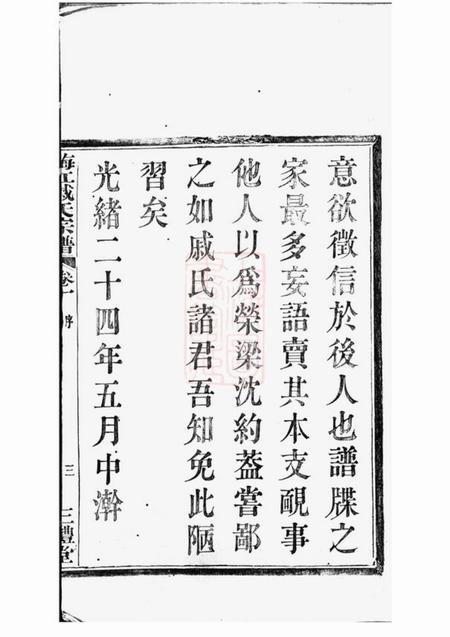 意欲徵信於後人也譜牒之
家最多妄語賣其本支覼事
他人以爲榮梁沈約葢嘗鄙
之如戚氏諸君吾知免此陋
習矣
光緒二十四年五月中澣
戚氏宗譜 卷一 序 三 三禮堂